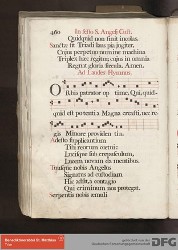 460 In festo S. Angeli Cust.
Quidquid non finit incolas.
Sanctæ sit Triadi laus pia jugiter,
Cujus perpetuo numine machina
Triplex hæc regitur, cujus in omnia
Regnat gloria sæcula. Amen.
Ad Laudes Hymnus.
Orbis patrator optime, Quid-
quid est potentia Magna creasti, nec re-
gis Minore providen tia.
Adesto supplicantium
Tibi reorum cœtui:
Lucisque sub crepusculum,
Lucem novam da mentibus.
Tuusque nobis Angelus
Signatus ad custodiam
Hic adsit, a contagio
Qui criminum nos protegat.
Serpentis nobis æmuli
DFG